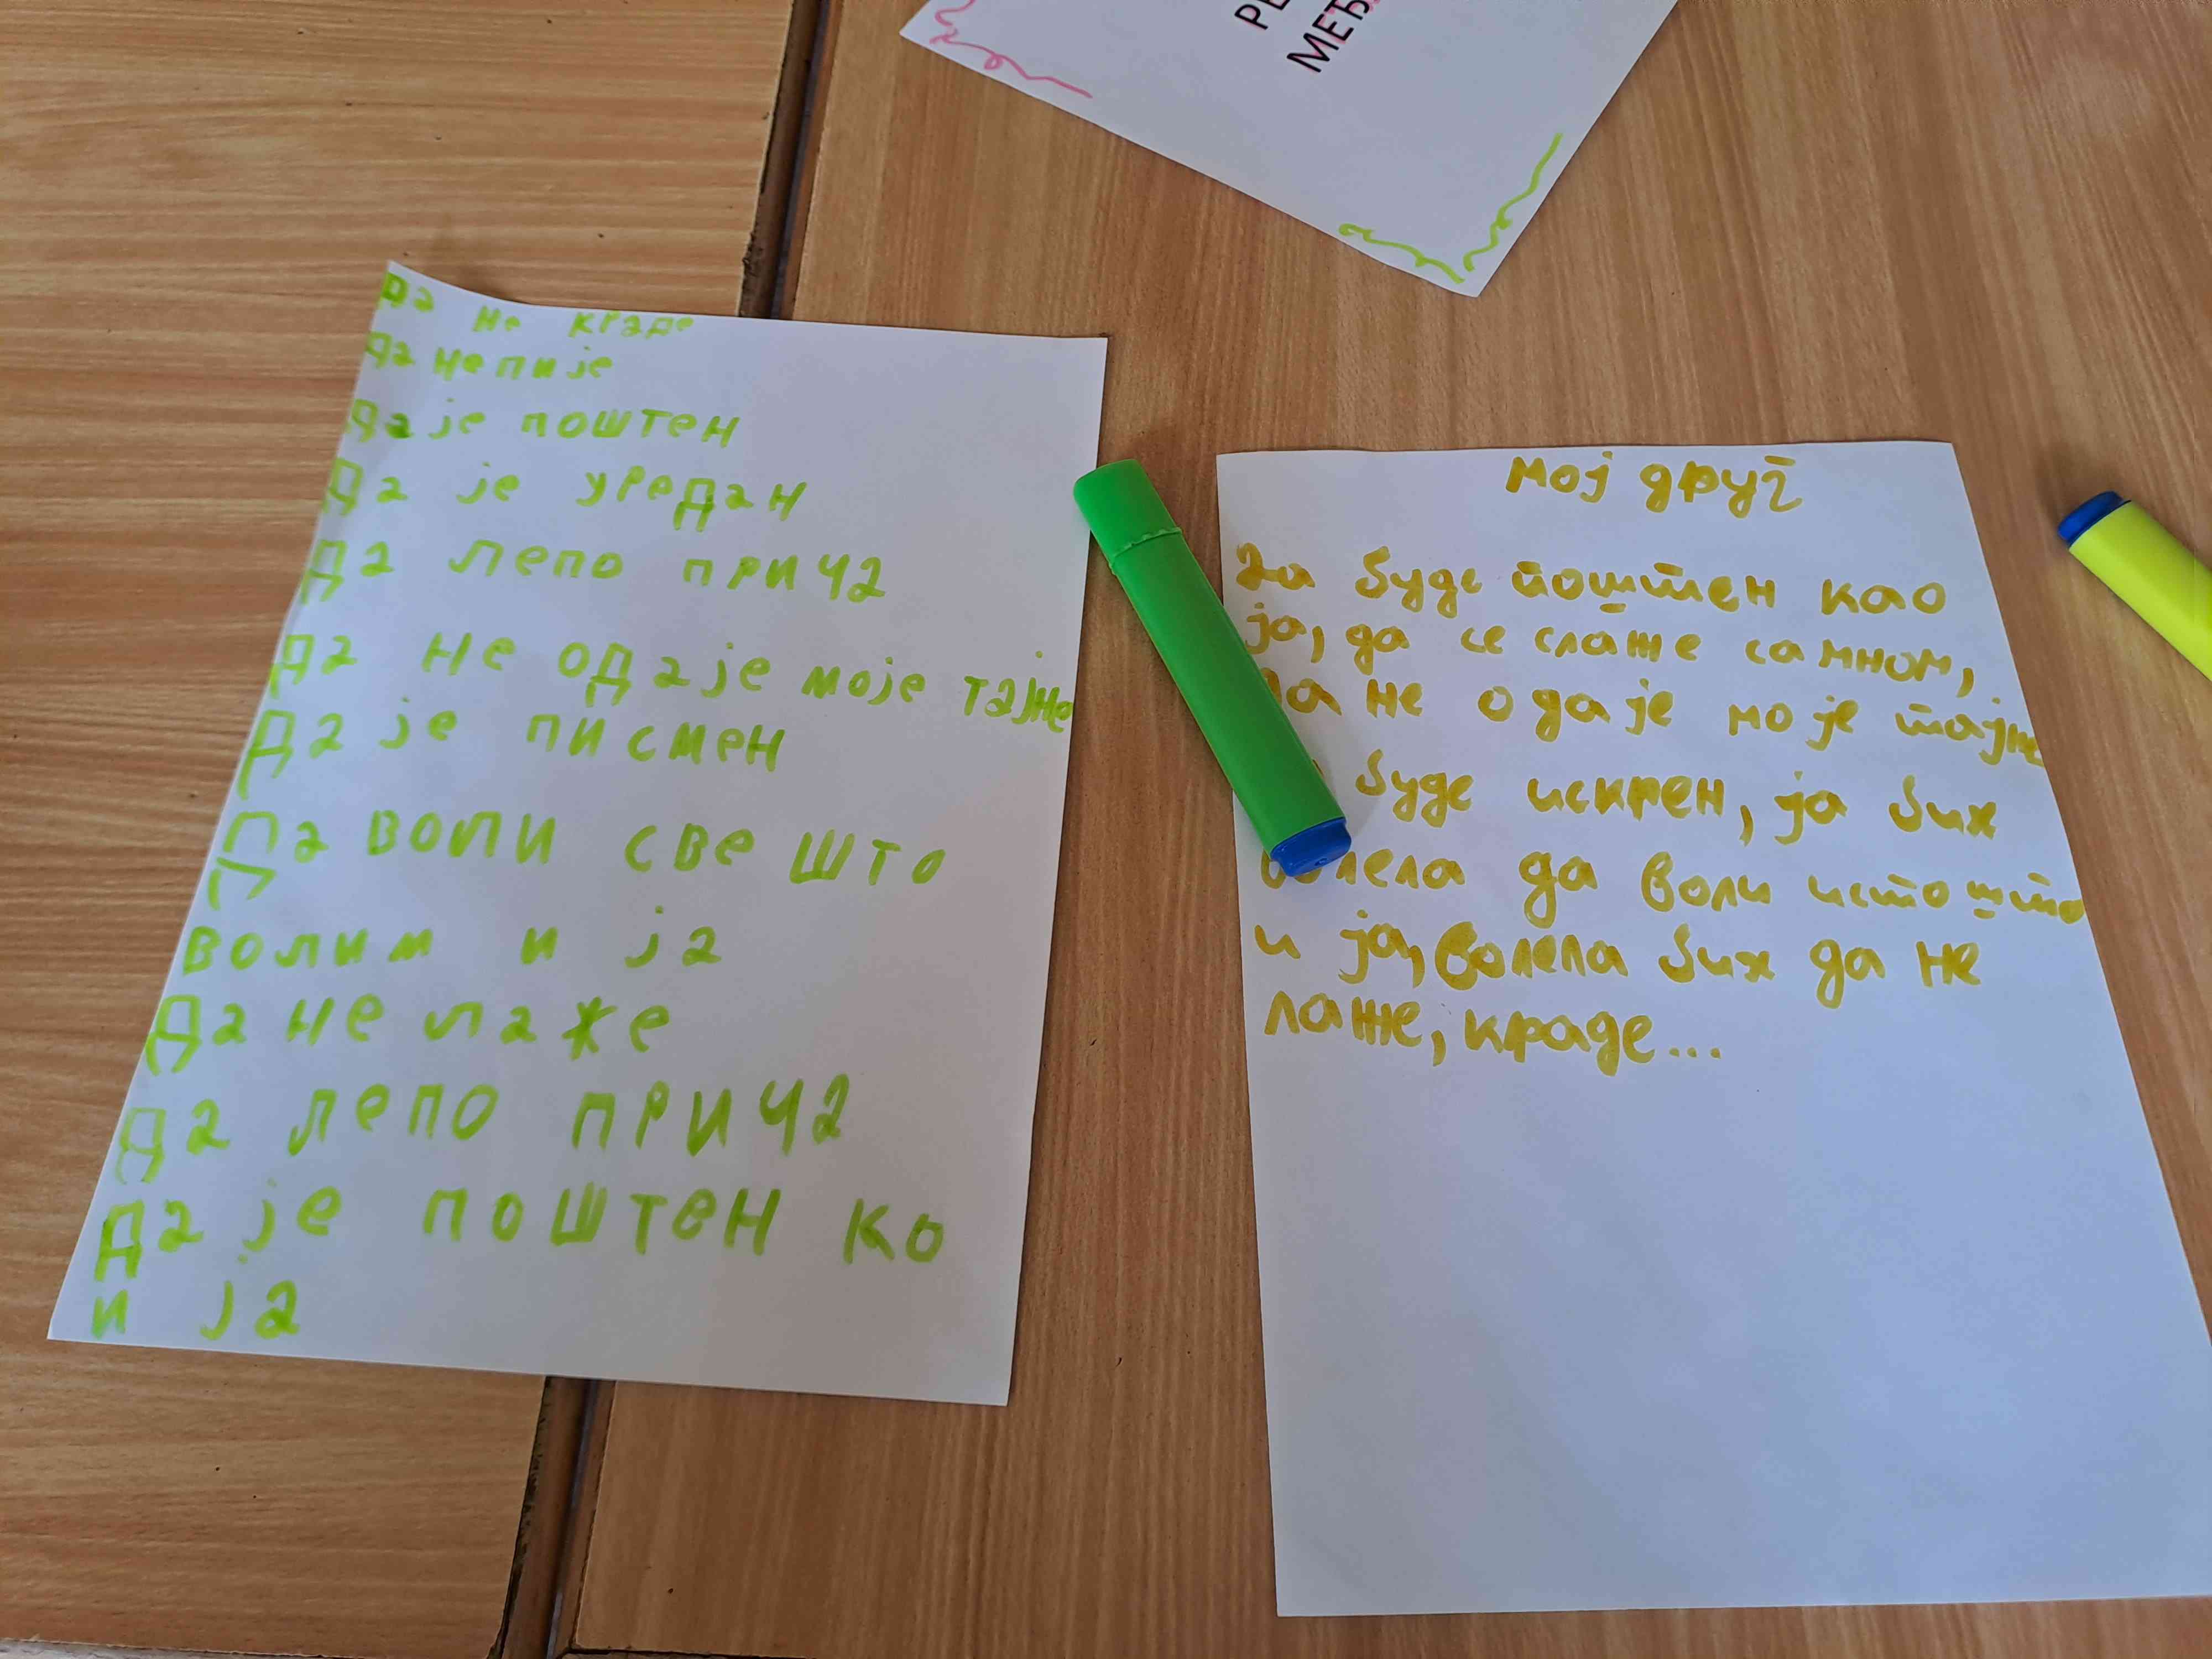 РЕ
МЕЂ
Да не краде
Да не пије
Да је поштен
Да је уредан
Да лепо прича
Да не одаје моје тајне
Да је писмен
Да воли све што
волим и ја
Да не лаже
Да лепо прича
Да је поштен ко
и ја
мој друг
Да буде поштен као
ја, да се слаже самном,
да не одаје моје тајне
буде искрен, ја бих
волела да воли исто што
и ја, волела бих да не
лаже, краде...